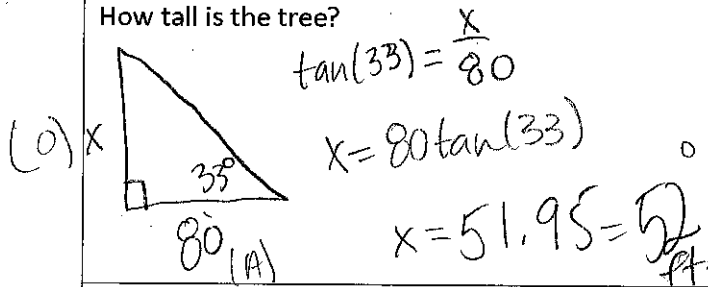 How tall is the tree?
tan(33) = x/80
(O) x
33°
x = 80tan(33)
80 (A)
x = 51.95 = 52 ft.